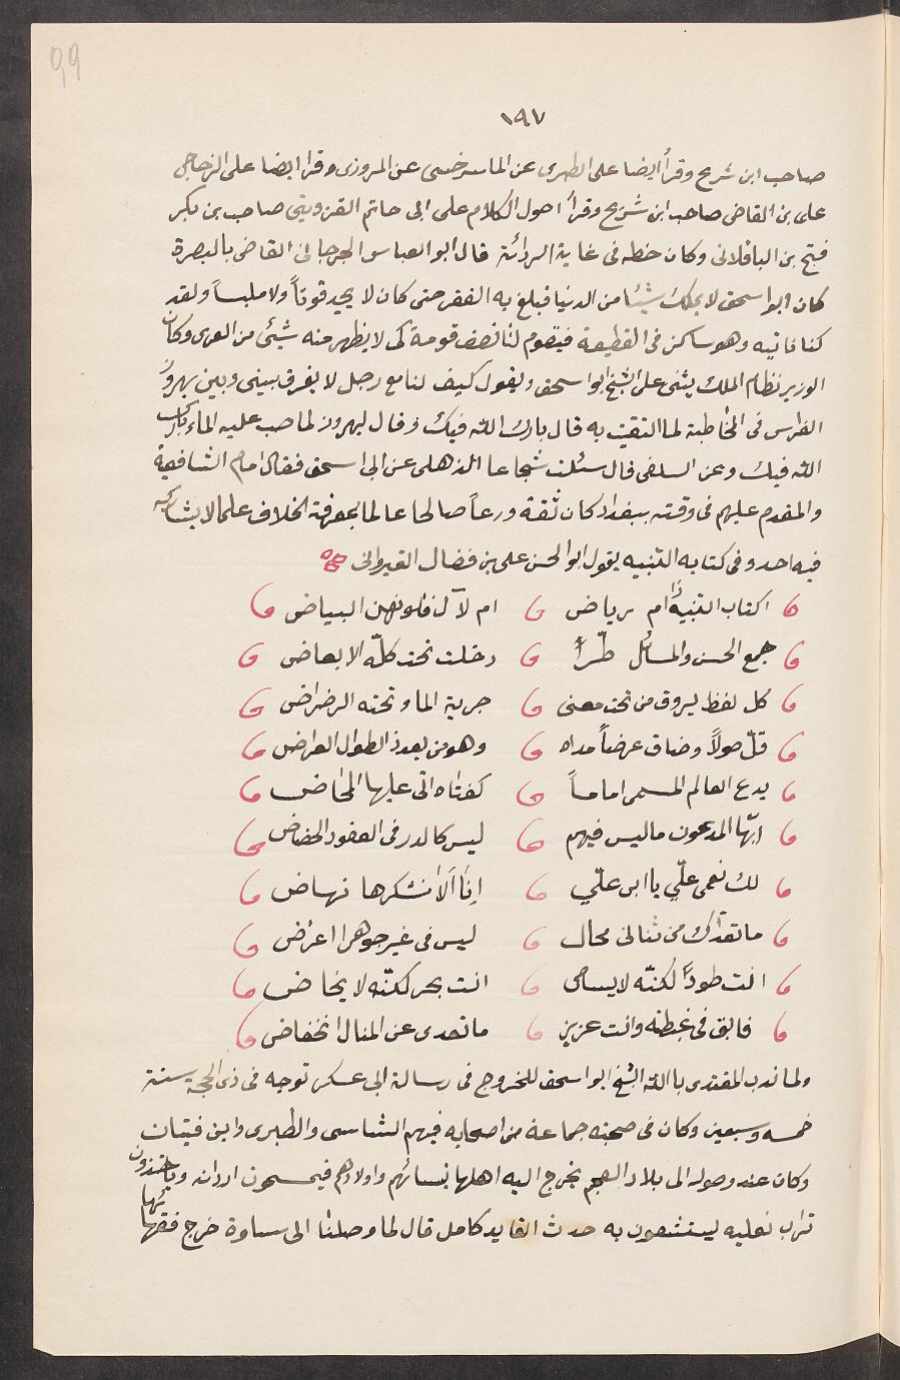 99
١٩٧
صاحب ابن شريح وقرأ ايضا على الطبرى عن الماسرخسى عن المروزى وقرا ايضا على الزجاجى
على بن القاضى صاحب ابن شريح وقرأ اصول الكلام على ابى حاتم القزوينى صاحب بن بكر
فتح بن الباقلانى وكان خطه فى غاية الردائة قال ابو العباس الجرجانى القاضى بالبصرة
كان ابواسحق لايملك شيئا من الدنيا فبلغ به الفقر حتى كان لا يجد قوتاً ولا ملبساً ولقد
كنا ناتيه وهو ساكن فى القطيعة فيقوم لنا نصف قومة كى لا يظهر منه شيئ من العرى وكان
الوزير نظام الملك يثنى على الشيخ ابواسحق ويقول كيف لنا مع رجل لا يفرق بينى وبين بهروز
الفراس فى المخاطبة لما التقيت به قال بارك الله فيك وقال لبهروز لما صب عليه الماء بارك
الله فيك وعن السلفى قال سئلت شجاعا الذهلى عن ابى اسحق فقال امام الشافعية
والمقدم عليهم فى وقته ببغداد كان ثقة ورعاً صالحا عالما بمعرفة الخلاف علما لا يشاركه
فيه احد وفى كتابه التنبيه يقول ابو الحسن على بن فضال القيروانى
اكتاب التنبيه ذا ام رياض ام لآلئ فلونهن البياض
جمع الحسن والمسائل طرّاً دخلت تحت كلّه الابعاض
كل لفظ يروق من تحت معنى جرية الماء تحته الرضراض
قلّ صولاً وضاق عرضاً مداه وهو من بعد ذا الطوال العراض
يدع العالم المسمى اماماً كفتاه اتى عليها المخاض
ايّها المدعون ماليس فيهم ليس كالدر فى العقود الحضاض
لك نعمى علّي يا ابن علّي انا الا نشكرها نهاض
ماتعداك من ثنائى محال ليس فى غير جوهرا اعراض
انت طودًا لكنّه لايسامى انت بحر لكنّه لا يخاض
فابق فى غبطة وانت عزيز ماتعدى عن المنال انخفاض
ولما ندب المقتدى باالله الشيخ ابواسحق للخروج فى رسالة الى عسكر توجه فى ذى الحجة سنة
خمسه وسبعين وكان فى صحبته جماعة من اصحابه فيهم الشاسى والطبرى وابن فتيان
وكان عند وصوله الى بلاد العجم يخرج اليه اهلها بنسائهم واولادهم فيمسحون اردانه وياخذون
تراب نعليه يستشفون به حدث القايد كامل قال لما وصلنا الى ساوة خرج فقهائها